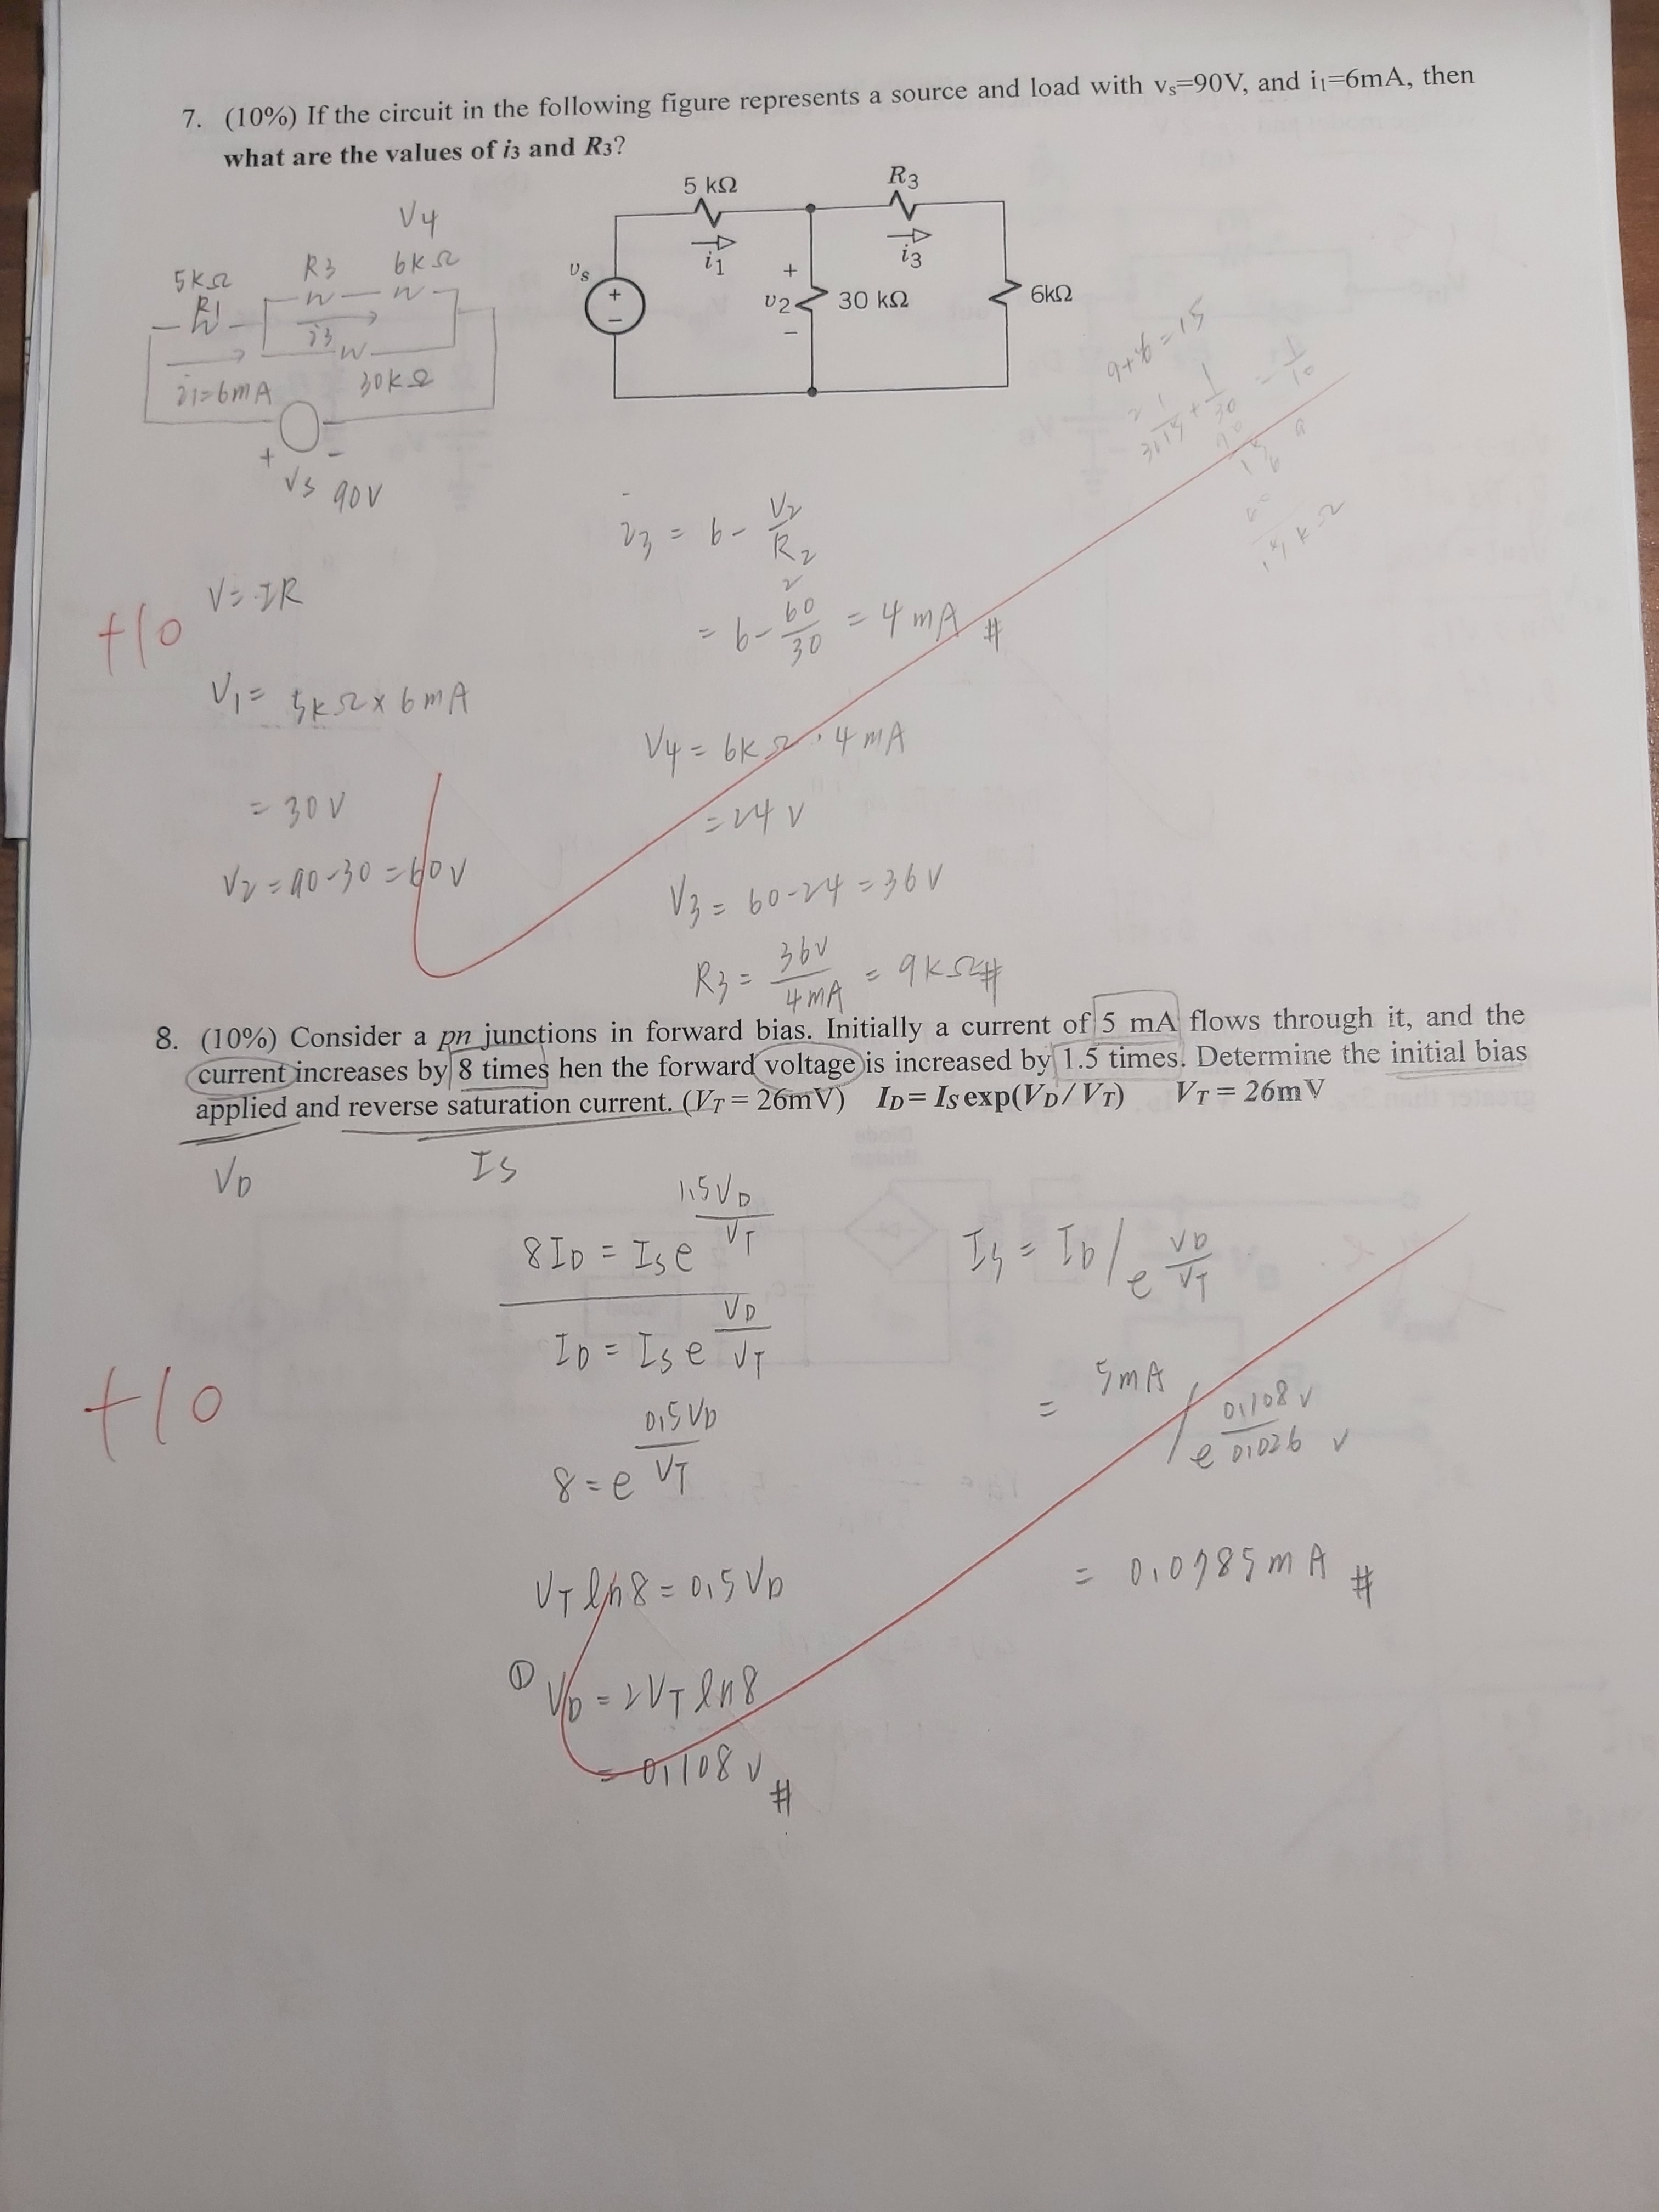 7. (10%) If the circuit in the following figure represents a source and load with vs=90V, and i1=6mA, then
what are the values of i3 and R3?
5 kΩ
R3
i1
i3
vs
+
−
+
v2
−
30 kΩ
6kΩ
V4
5kΩ
R3
6kΩ
R1
i3
i1=6mA
30kΩ
+
−
Vs 90V
9+6=15
i3 = 6 - V2/R2
= 6 - 60/30 = 4 mA #
+10
V=IR
V1 = 5kΩ × 6mA
= 30V
V2 = 90-30 = 60V
V4 = 6kΩ · 4mA
= 24V
V3 = 60-24 = 36V
R3 = 36V/4mA = 9kΩ#
8. (10%) Consider a pn junctions in forward bias. Initially a current of 5 mA flows through it, and the
current increases by 8 times hen the forward voltage is increased by 1.5 times. Determine the initial bias
applied and reverse saturation current. (VT = 26mV) ID= IS exp(VD/ VT) VT = 26mV
VD
IS
8ID = IS e^(1.5VD/VT)
ID = IS e^(VD/VT)
8 = e^(0.5VD/VT)
VT ln8 = 0.5VD
① VD = 2VT ln8
= 0.108V #
IS = ID / e^(VD/VT)
= 5mA / e^(0.108V/0.026V)
= 0.0785mA #
+10